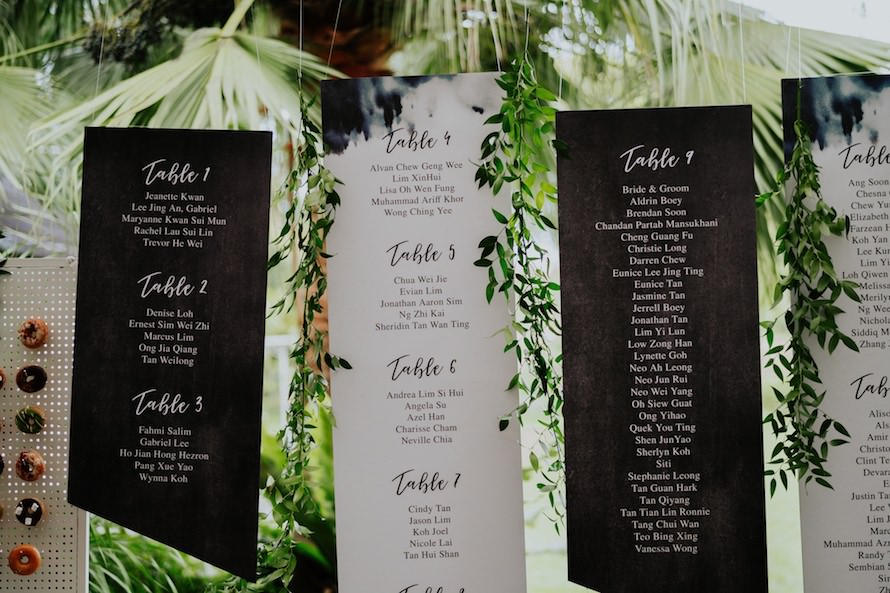 Table 1
Jeanette Kwan
Lee Jing An, Gabriel
Maryanne Kwan Sui Mun
Rachel Lau Sui Lin
Trevor He Wei
Table 2
Denise Loh
Ernest Sim Wei Zhi
Marcus Lim
Ong Jia Qiang
Tan Weilong
Table 3
Fahmi Salim
Gabriel Lee
Ho Jian Hong Hezron
Pang Xue Yao
Wynna Koh
Table 4
Alvan Chew Geng Wee
Lim XinHui
Lisa Oh Wen Fung
Muhammad Ariff Khor
Wong Ching Yee
Table 5
Chua Wei Jie
Evian Lim
Jonathan Aaron Sim
Ng Zhi Kai
Sheridin Tan Wan Ting
Table 6
Andrea Lim Si Hui
Angela Su
Azel Han
Charisse Cham
Neville Chia
Table 7
Cindy Tan
Jason Lim
Koh Joel
Nicole Lai
Tan Hui Shan
Table 9
Bride & Groom
Aldrin Boey
Brendan Soon
Chandan Partab Mansukhani
Cheng Guang Fu
Christie Long
Darren Chew
Eunice Lee Jing Ting
Eunice Tan
Jasmine Tan
Jerrell Boey
Jonathan Tan
Lim Yi Lun
Low Zong Han
Lynette Goh
Neo Ah Leong
Neo Jun Rui
Neo Wei Yang
Oh Siew Guat
Ong Yihao
Quek You Ting
Shen JunYao
Sherlyn Koh
Siti
Stephanie Leong
Tan Guan Hark
Tan Qiyang
Tan Tian Lin Ronnie
Tang Chui Wan
Teo Bing Xing
Vanessa Wong
Table
Ang Soon
Chesna
Elizabeth
Farzean
Koh
Kum
Lim Y
Loh Qiwen
Melissa
Merilyn
Ng Wee
Nichola
Siddiq M
Zhang
Table
Aliso
Als
Amir
Christo
Clint Te
Devara
E
Justin Ta
Lee
Lim
Lo
Muhammad Azr
Randy T
Sembian
Sim